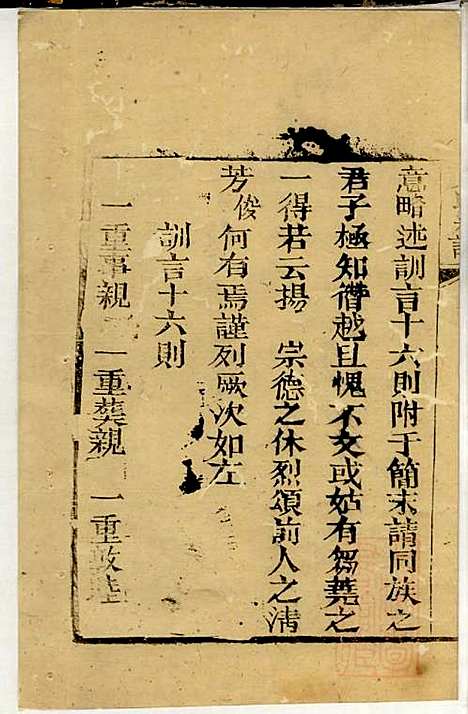 意略述訓言十六則附于簡末請同族之
君子極知僭越且愧不文或姑有芻蕘之
一得若云揚　宗德之休烈頌前人之淸
芳俊何有焉謹列厥次如左
訓言十六則
一重事親　一重葬親　一重敦睦